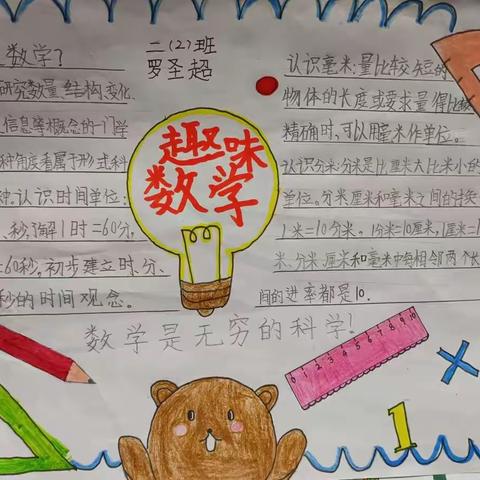 数学?
二(2)班
罗圣超
研究数量、结构、变化、
信息等概念的一门学
种角度看属于形式科
认识时间单位:
秒,了解1时=60分,
=60秒。初步建立时、分、
秒的时间观念。
趣味
数学
认识毫米:量比较短的
物体的长度或要求量得比较
精确时,可以用毫米作单位。
认识分米:分米是比厘米大比米小的
单位。分米厘米和毫米之间的转换
1米=10分米。1分米=10厘米,1厘米=1
米、分米、厘米和毫米中每相邻两个长
间的进率都是10.
数学是无穷的科学!
0 1 2 3 4 5 6 7 8 9 10
×
1